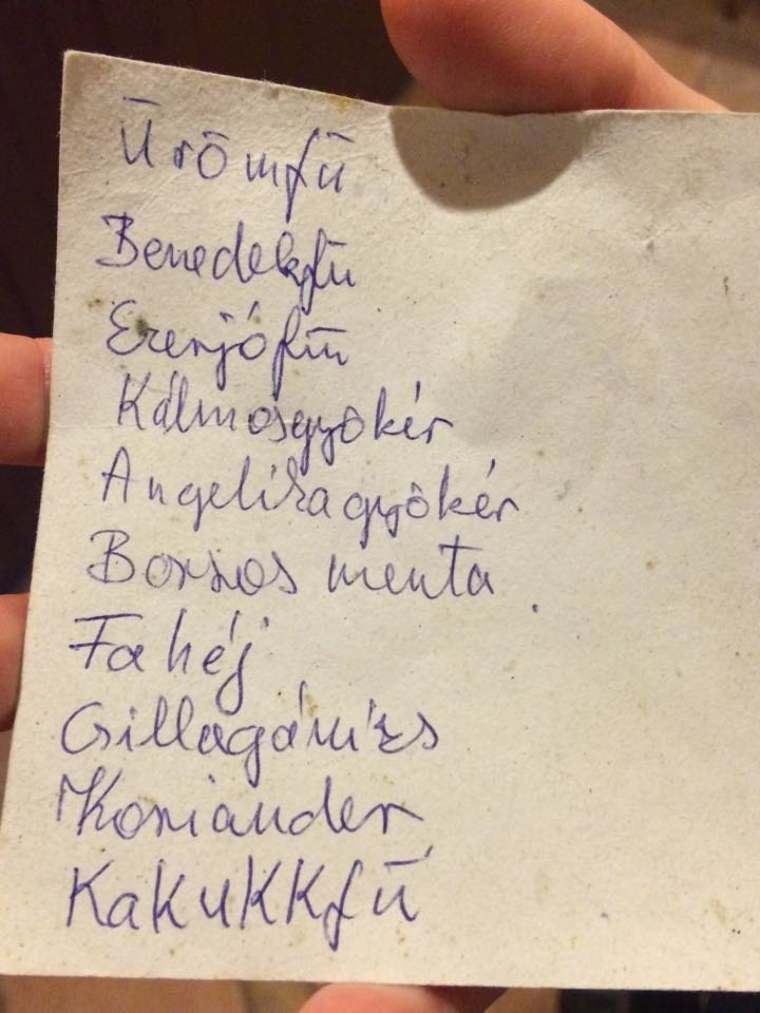 Ürömfű
Benedekfű
Ezerjófű
Kálmosgyökér
Angelikagyökér
Borsos menta
Fahéj
Csillagánizs
Koriander
Kakukkfű